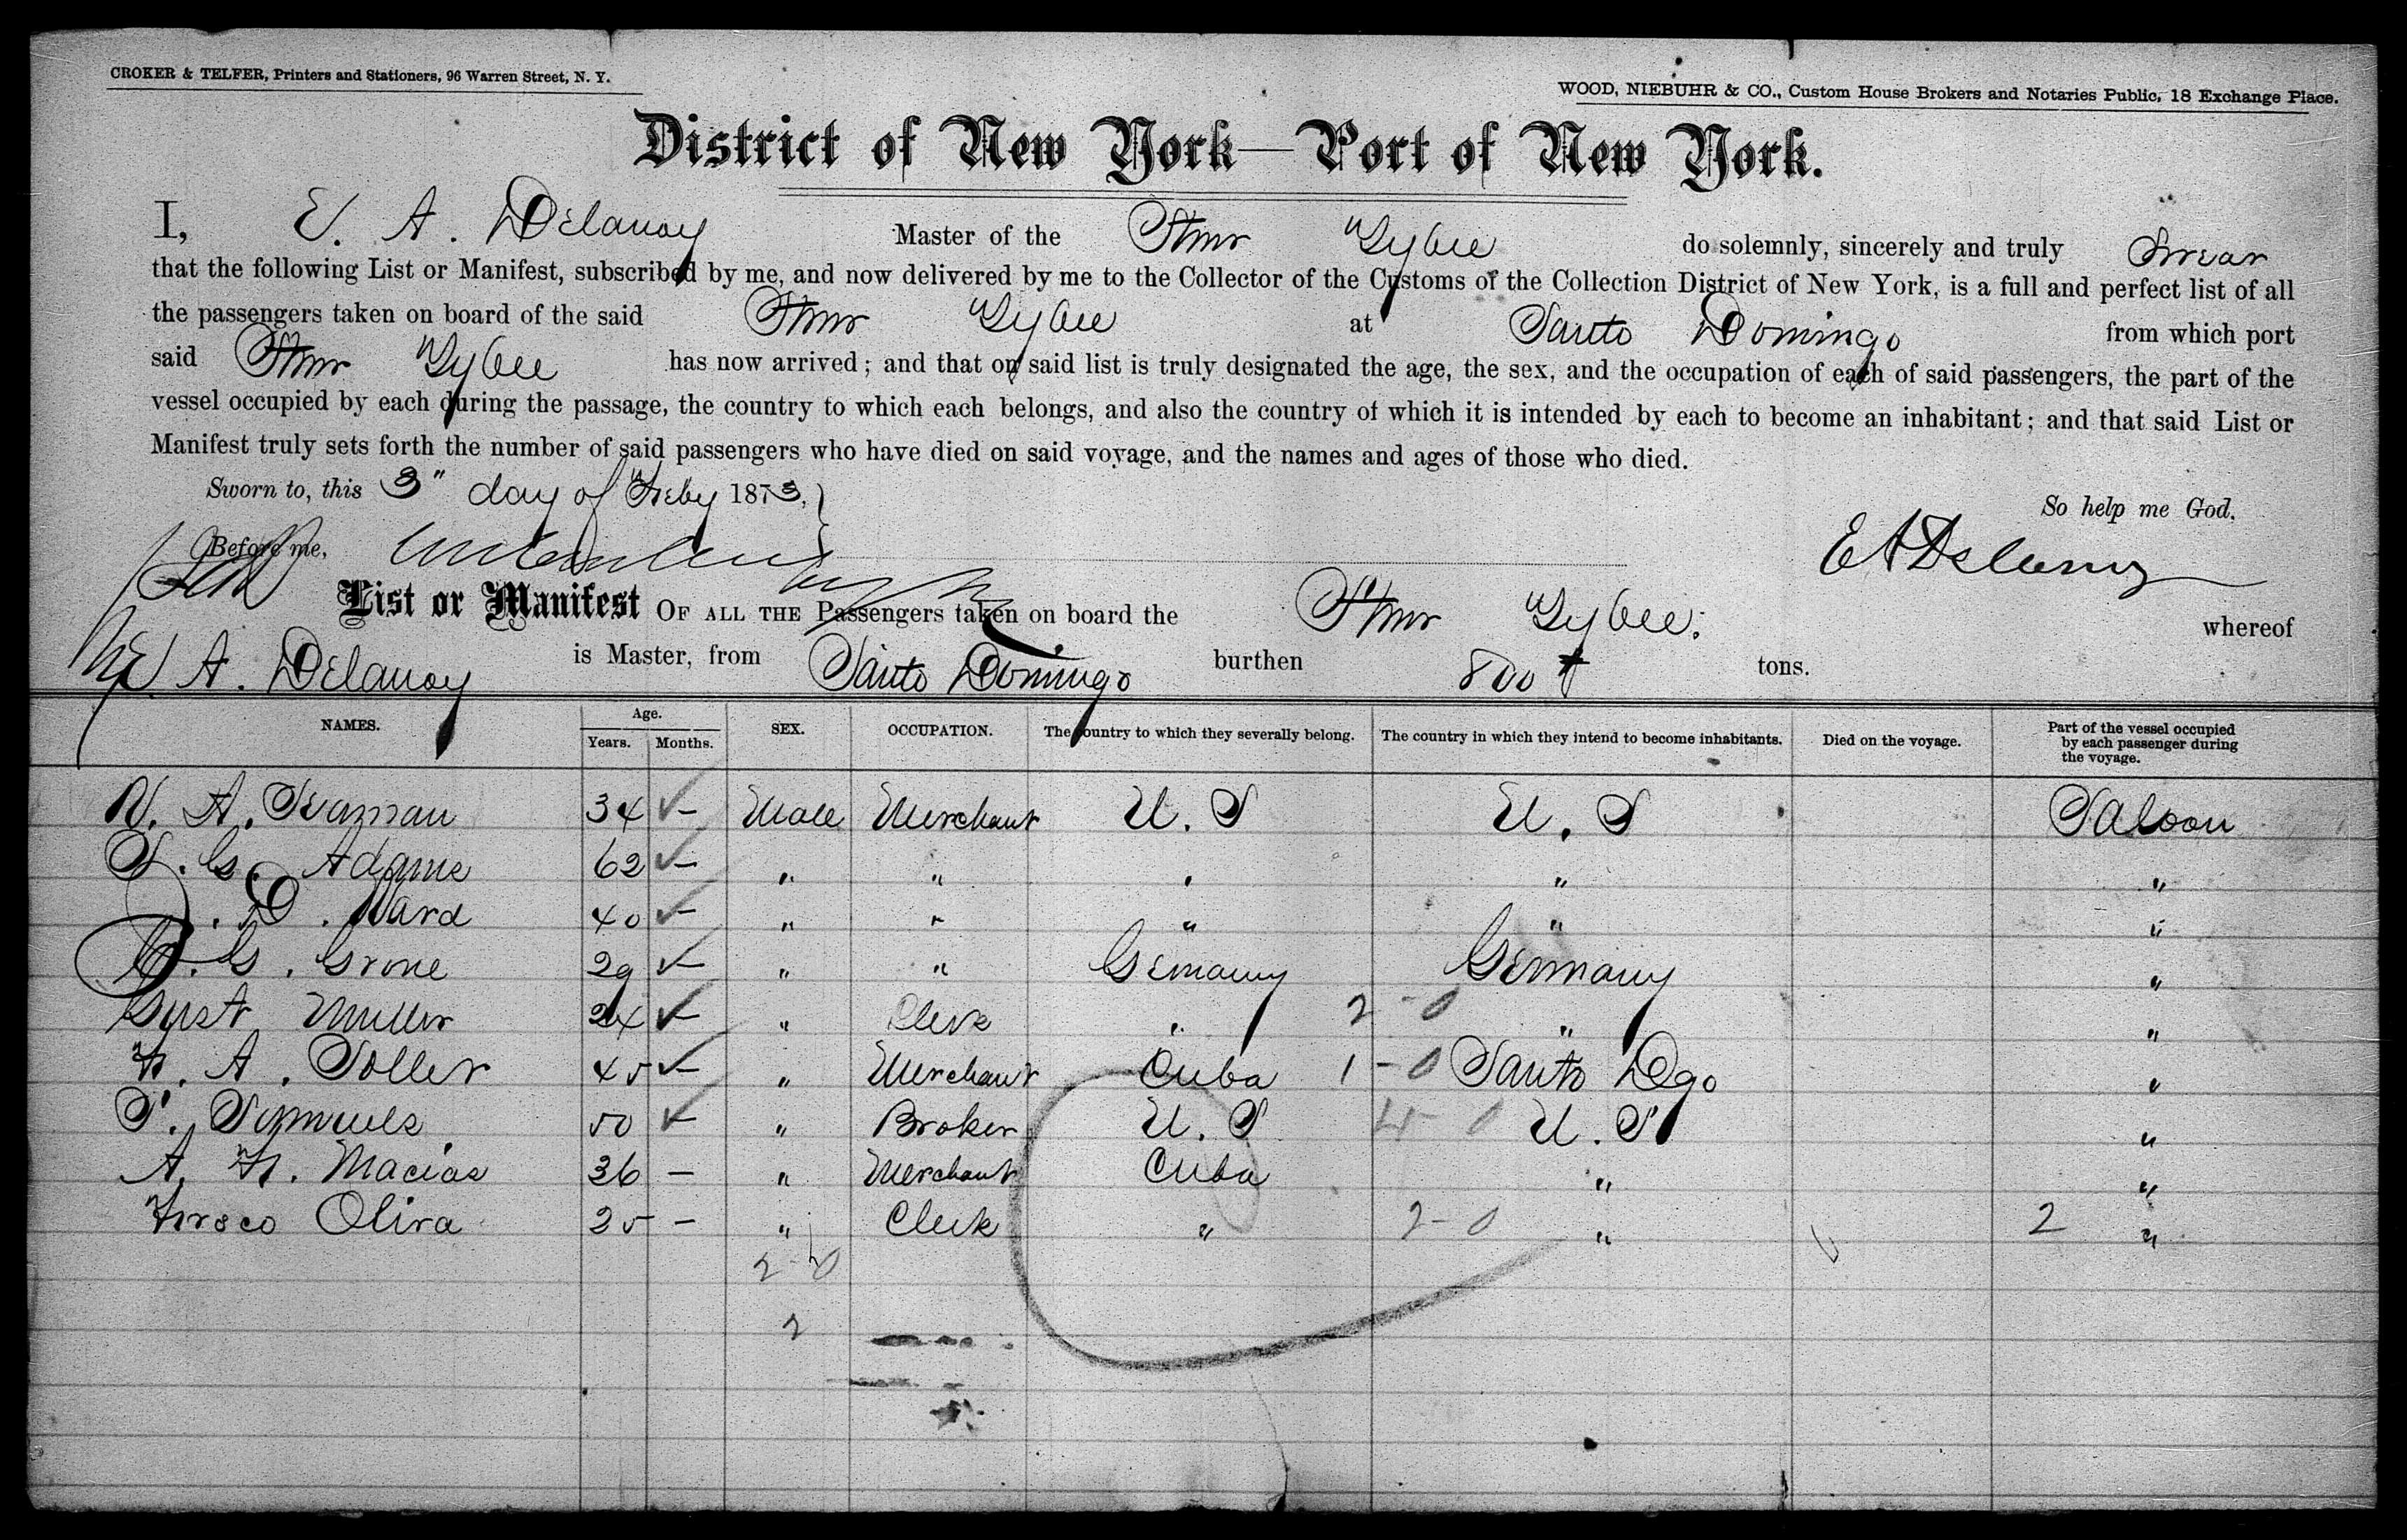 CROKER & TELFER, Printers and Stationers, 96 Warren Street, N. Y.
WOOD, NIEBUHR & CO., Custom House Brokers and Notaries Public, 18 Exchange Place.
District of New York—Port of New York.
I, E. A. Delanoy Master of the Stmr Tybee do solemnly, sincerely and truly Swear
that the following List or Manifest, subscribed by me, and now delivered by me to the Collector of the Customs of the Collection District of New York, is a full and perfect list of all
the passengers taken on board of the said Stmr Tybee at Santo Domingo from which port
said Stmr Tybee has now arrived; and that on said list is truly designated the age, the sex, and the occupation of each of said passengers, the part of the
vessel occupied by each during the passage, the country to which each belongs, and also the country of which it is intended by each to become an inhabitant; and that said List or
Manifest truly sets forth the number of said passengers who have died on said voyage, and the names and ages of those who died.
Sworn to, this 3" day of Feby 1873,
So help me God.
Before me,
E A Delanoy
List or Manifest OF ALL THE Passengers taken on board the Stmr Tybee. whereof
E. A. Delanoy is Master, from Santo Domingo burthen 800 tons.
NAMES. Age. Years. Months. SEX. OCCUPATION. The country to which they severally belong. The country in which they intend to become inhabitants. Died on the voyage. Part of the vessel occupied by each passenger during the voyage.
A. Seaman 34 – Male Merchant U. S U. S Saloon
S. G. Adams 62 – " " " " "
D. Ward 40 – " " " " "
G. Grone 29 – " " Germany Germany "
Gust Muller 24 – " Clerk " 2-0 " "
F. A. Soller 45 – " Merchant Cuba 1-0 Santo Dgo "
S. Samuels 50 – " Broker U. S 4-0 U. S "
A. F. Macias 36 – " Merchant Cuba " "
Frsco Oliva 25 – " Clerk " 2-0 " 2 "
2-0
2